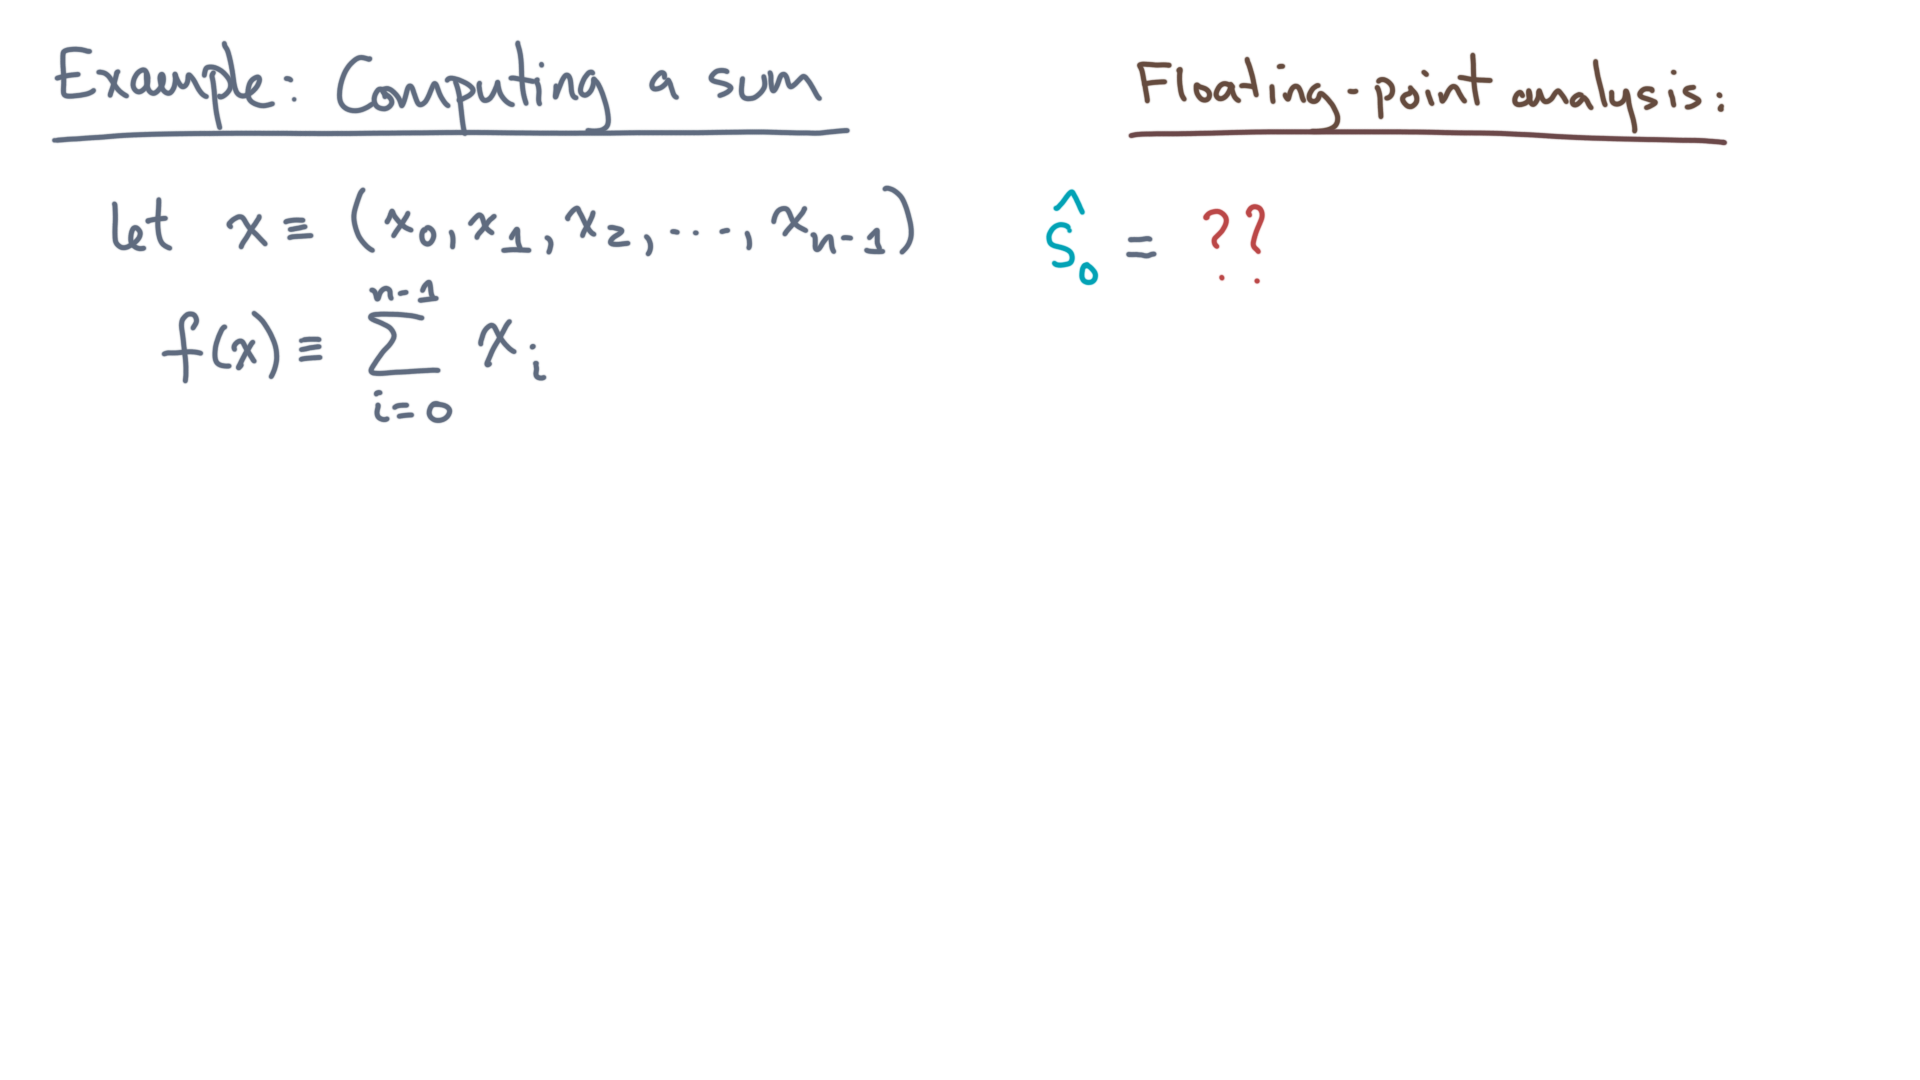 Example: Computing a sum
let x ≡ (x₀, x₁, x₂, ..., xₙ₋₁)
f(x) ≡ ∑_{i=0}^{n-1} xᵢ
Floating-point analysis:
ŝ₀ = ??